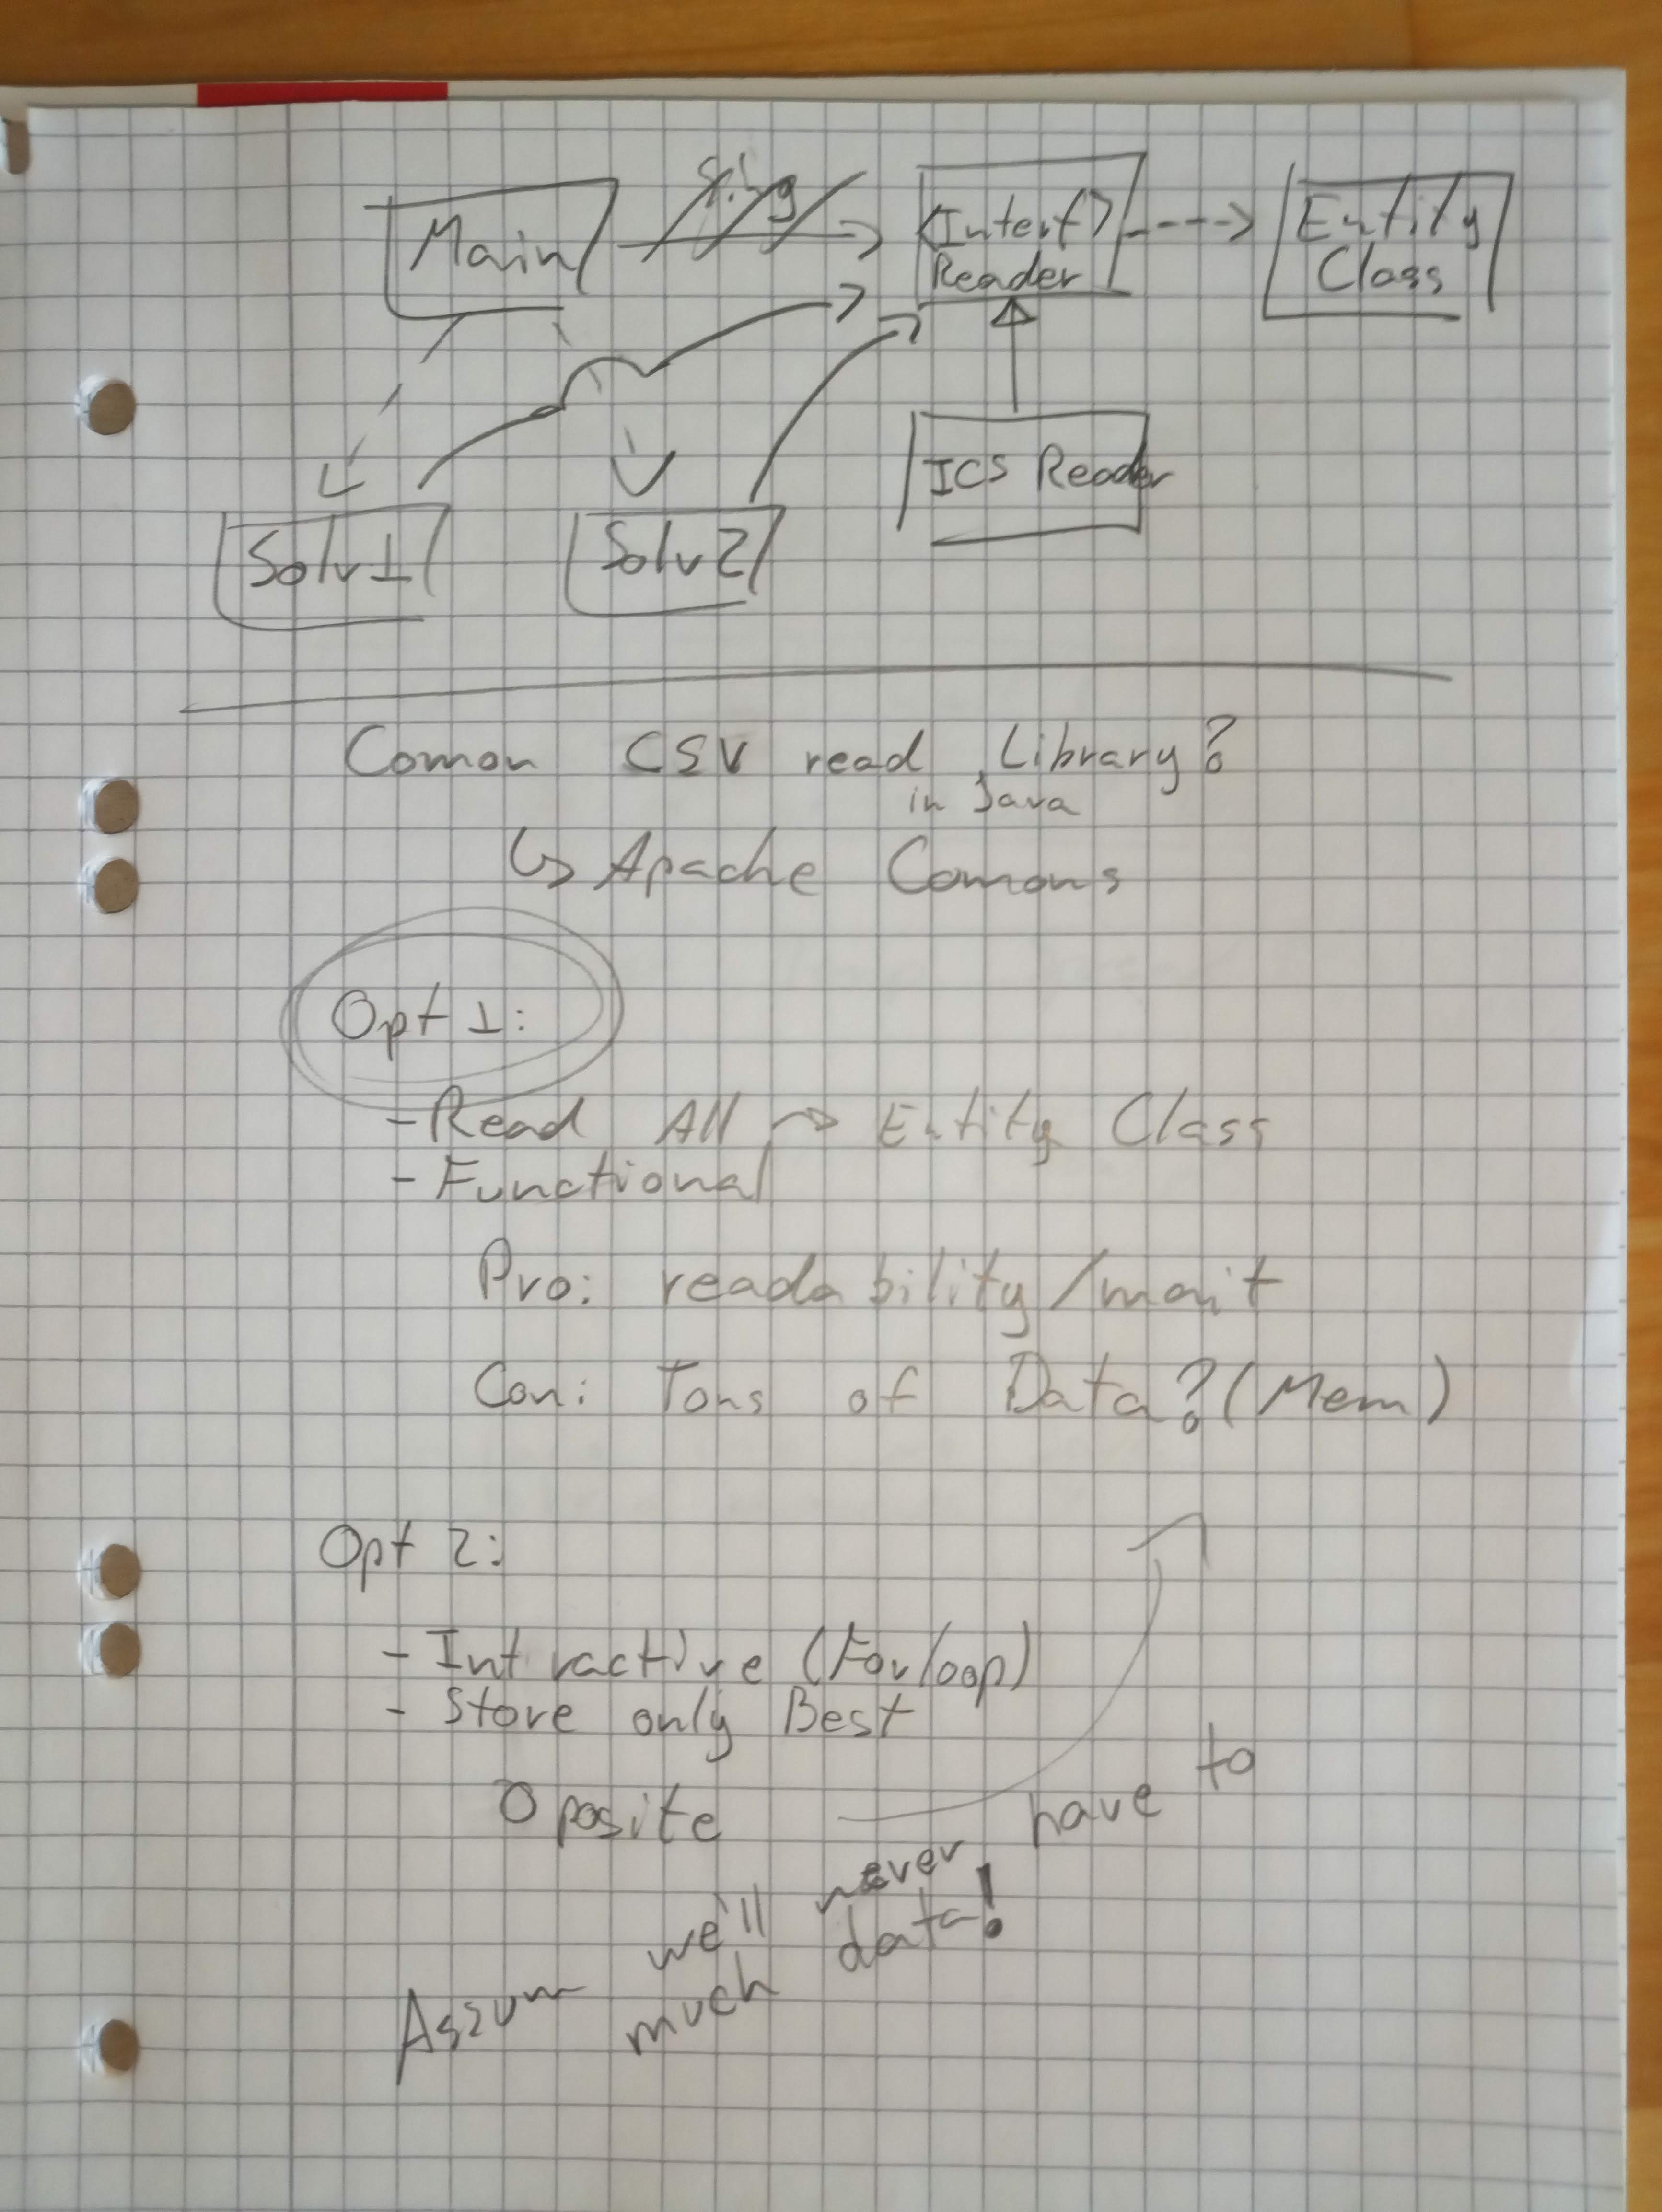 Main
<Interf>
Reader
Entity
Class
ICS Reader
Solv1
Solv2
Comon CSV read Library?
in Java
↳ Apache Comons
Opt 1:
- Read All → Entity Class
- Functional
Pro: readability/mait
Con: Tons of Data? (Mem)
Opt 2:
- Intractive (Forloop)
- Store only Best
Oposite
Assum we'll never have to
much data!